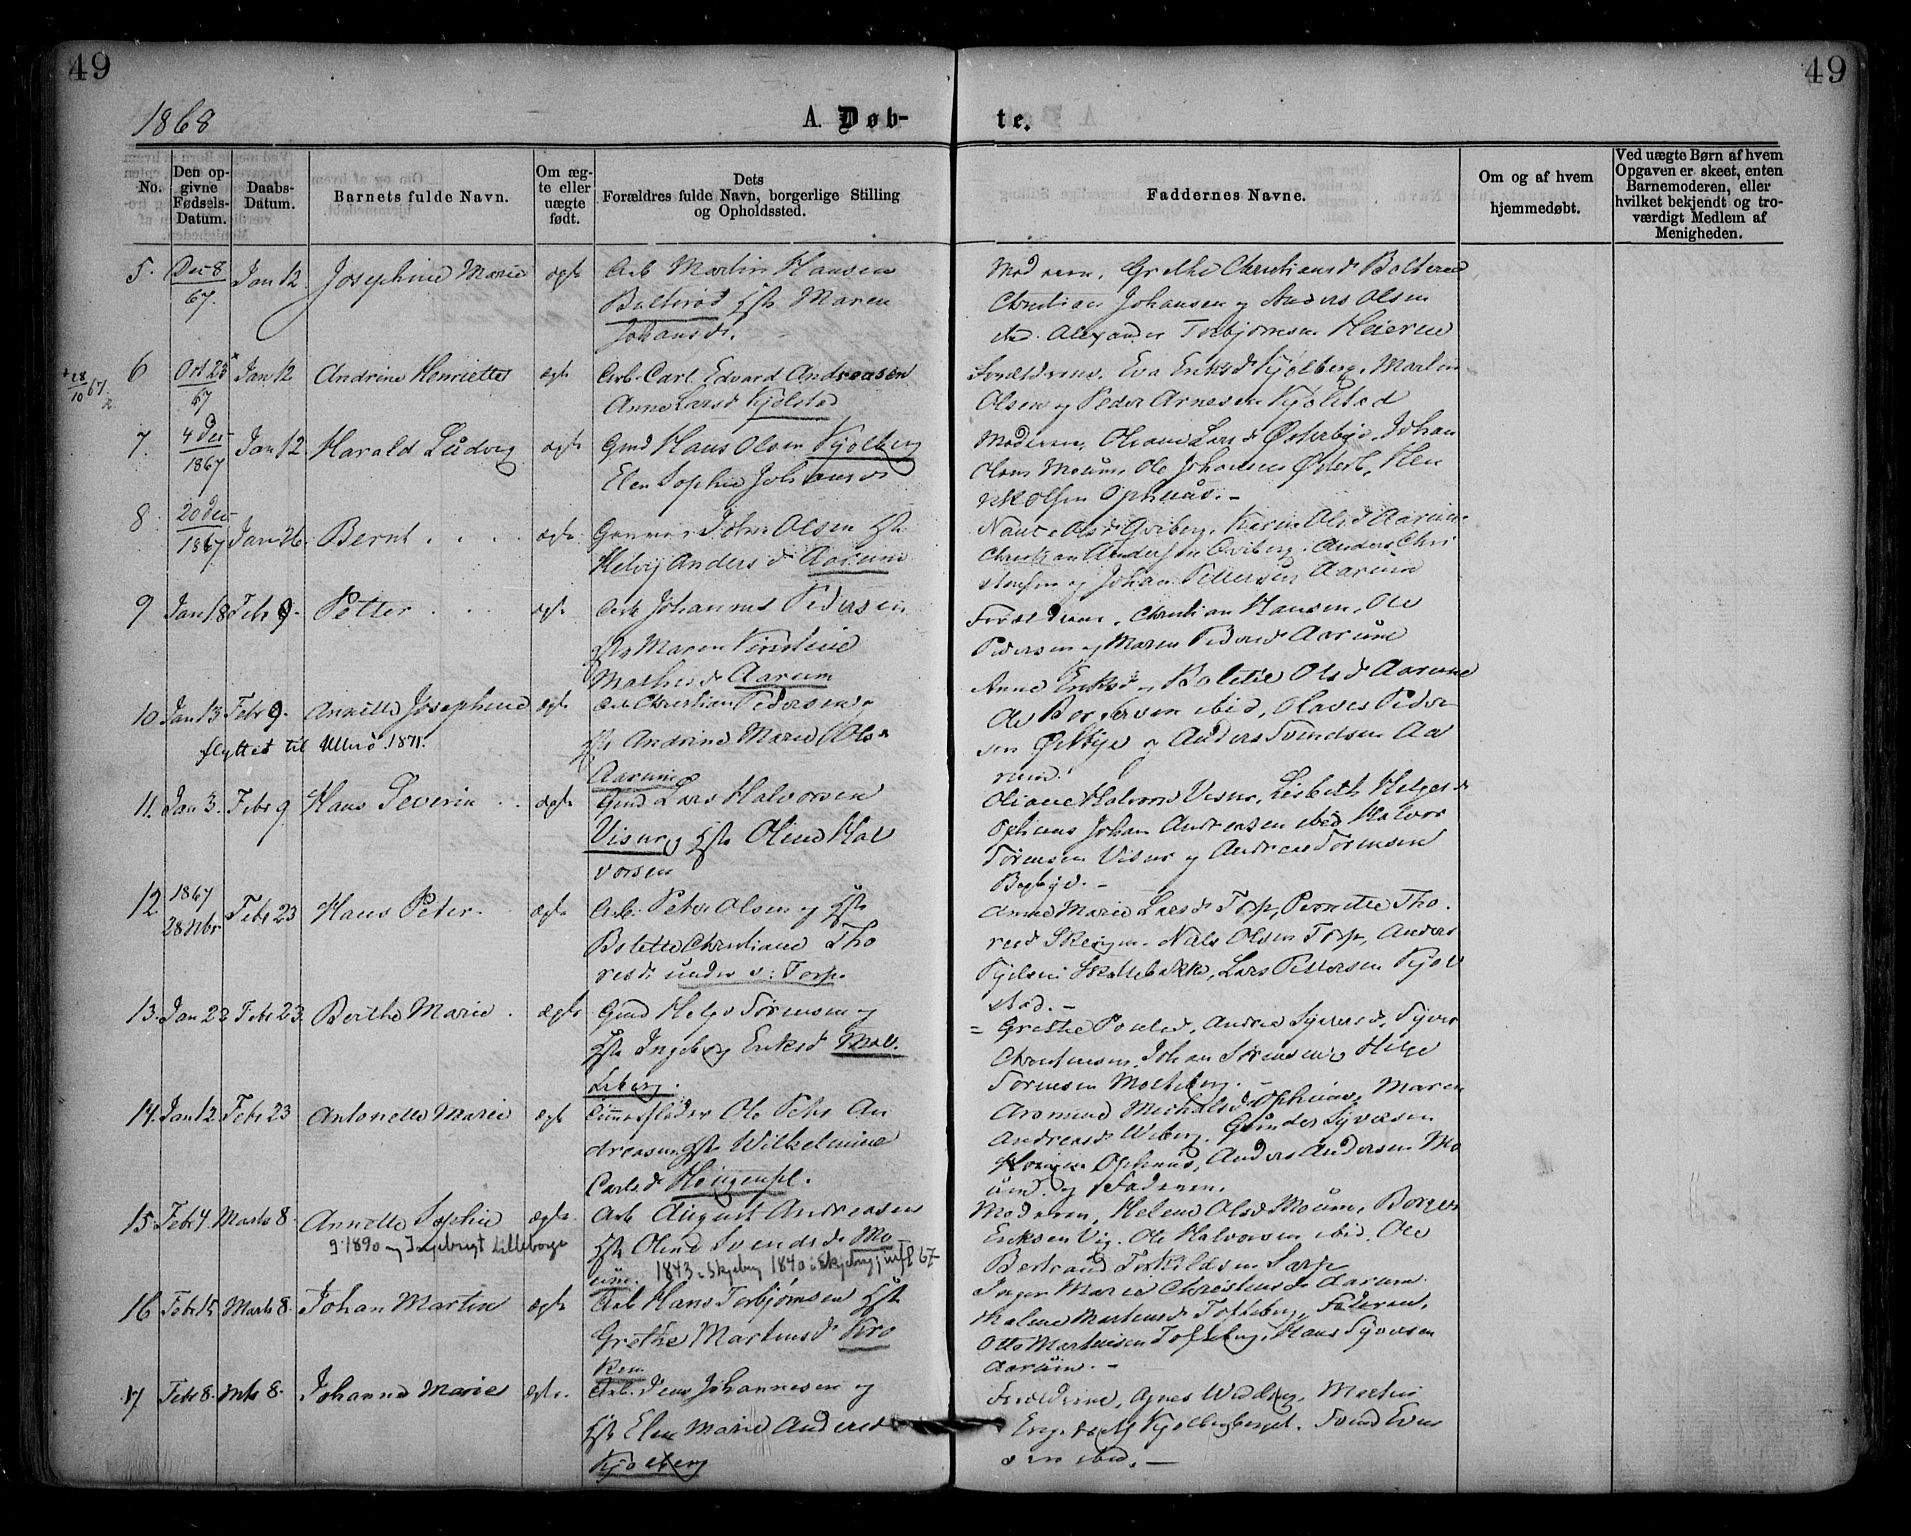 49
49
1868
A. Døb-
te.
No.
Den op-
givne
Fødsels-
Datum.
Daabs-
Datum.
Barnets fulde Navn.
Om æg-
te eller
uægte
født.
Dets
Forældres fulde Navn, borgerlige Stilling
og Opholdssted.
Faddernes Navne.
Om og af hvem
hjemmedøbt.
Ved uægte Børn af hvem
Opgaven er skeet, enten
Barnemoderen, eller
hvilket bekjendt og tro-
værdigt Medlem af
Menigheden.
5. Dec 8 67. Jan 12 Josephine Marie ægte Arb Martin Hansen
Johansd.
Moderen, Grethe Christiansd
Christian Johansen og Anders Olsen
Alexander Torbjørnsen
28/10 67.
6 Oct 23 67 Jan 12 Andrine Henriette ægte Arb. Carl Edvard Andreasen
Anne Larsd Kjølstad
Forældrene, Eva Eriksd Kjølberg, Martin
Olsen og Peder Arnesen Kjølstad
7. 4 Dec 1867 Jan 12 Harald Ludvig ægte Gmd Hans Olsen Kjølberg
Elen Sophie Johansd
Moderen, Oliane Larsd Østerbye, Johan
Olsen Moum, Ole Johansen Østerb, Hen
rik Olsen Ophuus. -
8 20 Dec 1867 Jan 26 Bernt . . . . ægte Johan Olsen Hst
Helvig Andersd Aarum
Olsd Qviberg, Karen Olsd Aarum
Christian Andersen Qviberg, Anders Chri
stensen og Johan Pettersen Aarum
9 Jan 18 Feb 9. Petter . . . ægte Arb Johannes Pedersen
Hst Maren Kirstine
Mathisd Aarum
Forældrene, Christian Hansen, Ole
Pedersen og Maren Pedersd Aarum
10 Jan 13 Febr 9. Annette Josephine ægte Arb Christian Pedersen
Hst Andrine Marie Ols
Aarum
flyttet til Ullerø 1871.
Anne Eriksd og Bolette Olsd Aarum
Ole ibid, Olaves Peder
sen og Anders Svendsen Aa
rum.
11. Jan 3. Febr 9 Hans Severin . . ægte Gmd Lars Halvorsen
Visur og Hst Oline Hal
vorsen
Oliane Halvors Visur, Lisbeth Helgesd
Ophuus Johan Andersen ibid Halvor
Sørensen Visur og Andreas Sørensen
Bogbye. -
12 1867 28 Nbr Febr 23 Hans Peter. ægte Arb. Peter Olsen og Hst
Bolette Christiane Tho
resd. under s: Torp.
Anne Marie Larsd Torp, Pernette Tho
resd Niels Olsen Torp, Anders
Skaltebakke, Lars Pettersen Kjøl
stad. -
13. Jan 22 Febr 23. Berthe Marie . ægte Gmd Helge Sørensen og
Hst Ingeborg Eriksd Mol-
leberg.
= Grethe Andrea Syversd, Syver
Christensen, Johan Sørensen, Helge
Sørensen Molteberg. -
14. Jan 12 Febr 23 Antonette Marie ægte Ole Petr An
dreasen Hst Wilhelmine
Carlsd
Michalsd Ophuus, Maren
Andreasd Viberg, Gunder Syversen
Ophuus, Anders Andersen Mo
um og Faderen.
15. Febr 4. Marts 8. Annette Sophie ægte. Arb August Andreasen
Hst Oline Svendsd Mo
um.
g. 1890 m/ Ingebrigt Lilleborge
1843 i Skjeberg 1840 i Skjeberg
Moderen, Helene Olsd Moum, Borger
Eriksen Vig, Ole Halvorsen ibid, Ole
Bertrand Torkildsen Sarp
16 Febr 15 Marts 8. Johan Martin ægte Arb Hans Torbjørnsen Hst
Grethe Martinsd Kro
ken
Inger Marie Christiansd Aarum
Malene Martinsd Tofteberg, Faderen,
Otto Martinsen Tofteberg, Hans Syversen
Aarum. -
17 Febr 8. Mts 8. Johanne Marie ægte. Arb. Jens Johannesen og
Hst Elen Marie Andersd
Kjølberg
Forældrene, Agnes Martin
Kjølbergberget. Svend Even
sen ibid. -